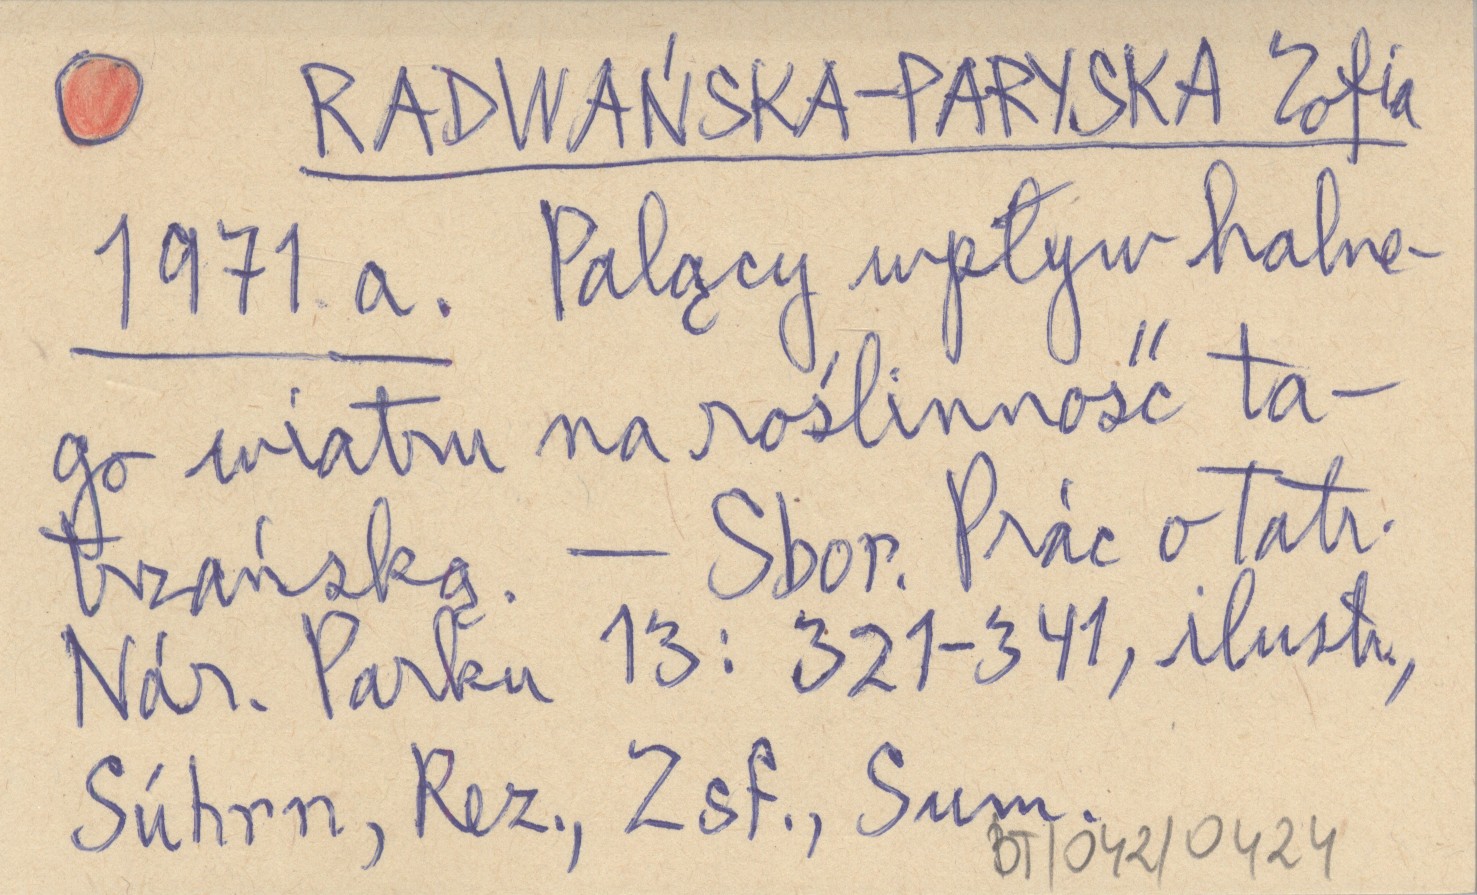 RADWAŃSKA-PARYSKA Zofia
1971.a. Palący wpływ halne-
go wiatru na roślinność ta-
trzańską. — Sbor. Prác o Tatr.
Nár. Parku 13: 321-341, ilustr.,
Súhrn, Rez., Zsf., Sum.
BT/042/0424